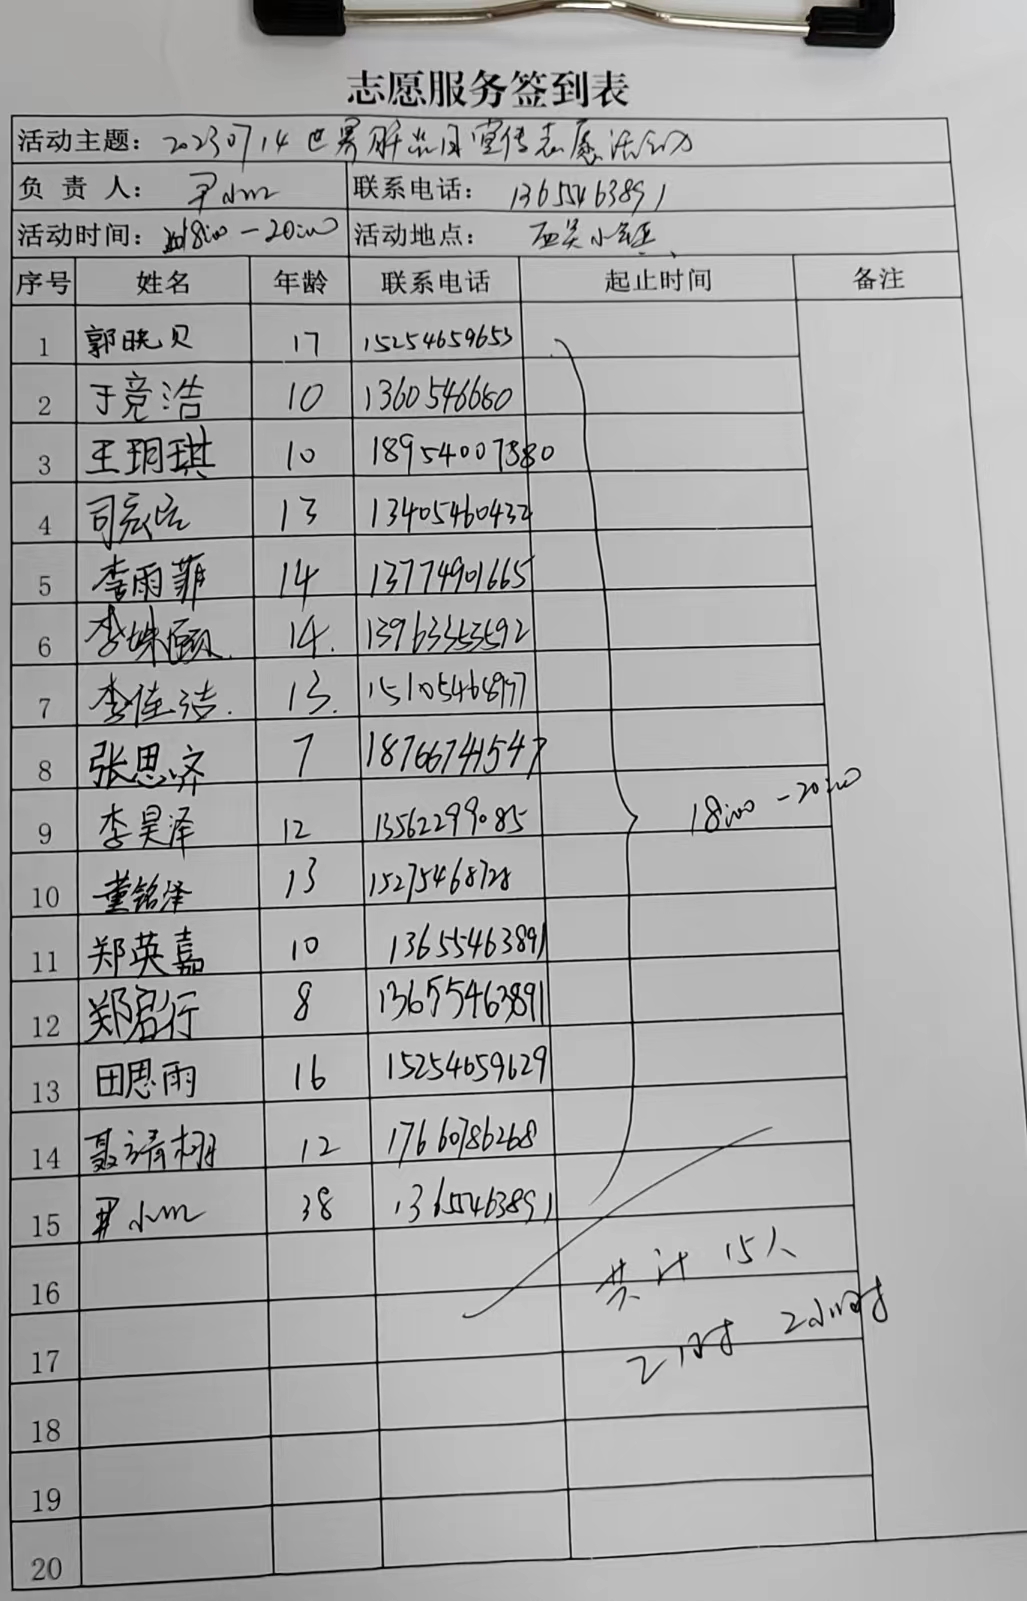 志愿服务签到表
活动主题： 20230714世界 日宣传志愿活动
负 责 人： 尹小 联系电话： 13655463891
活动时间： 18:00-20:00 活动地点： 小镇
序号 姓名 年龄 联系电话 起止时间 备注
1 郭晓贝 17 15254659653
2 于竞浩 10 1360546660
3 王玥琪 10 18954007580
4 司 13 13405460432
5 李雨菲 14 13774901665
6 李姝颐 14. 13963353592
7 李佳洁. 13.
8 张思齐 7 18766741547
9 李昊泽 12 13562299085
18:00-20:00
10 董铭泽 13 15275468728
11 郑英嘉 10 13655463891
12 郑启行 8 13655463891
13 田思雨 16 15254659629
14 聂靖栩 12 17660786268
15 尹小 38 13655463891
16 共计 15人
17 2小时
18
19
20